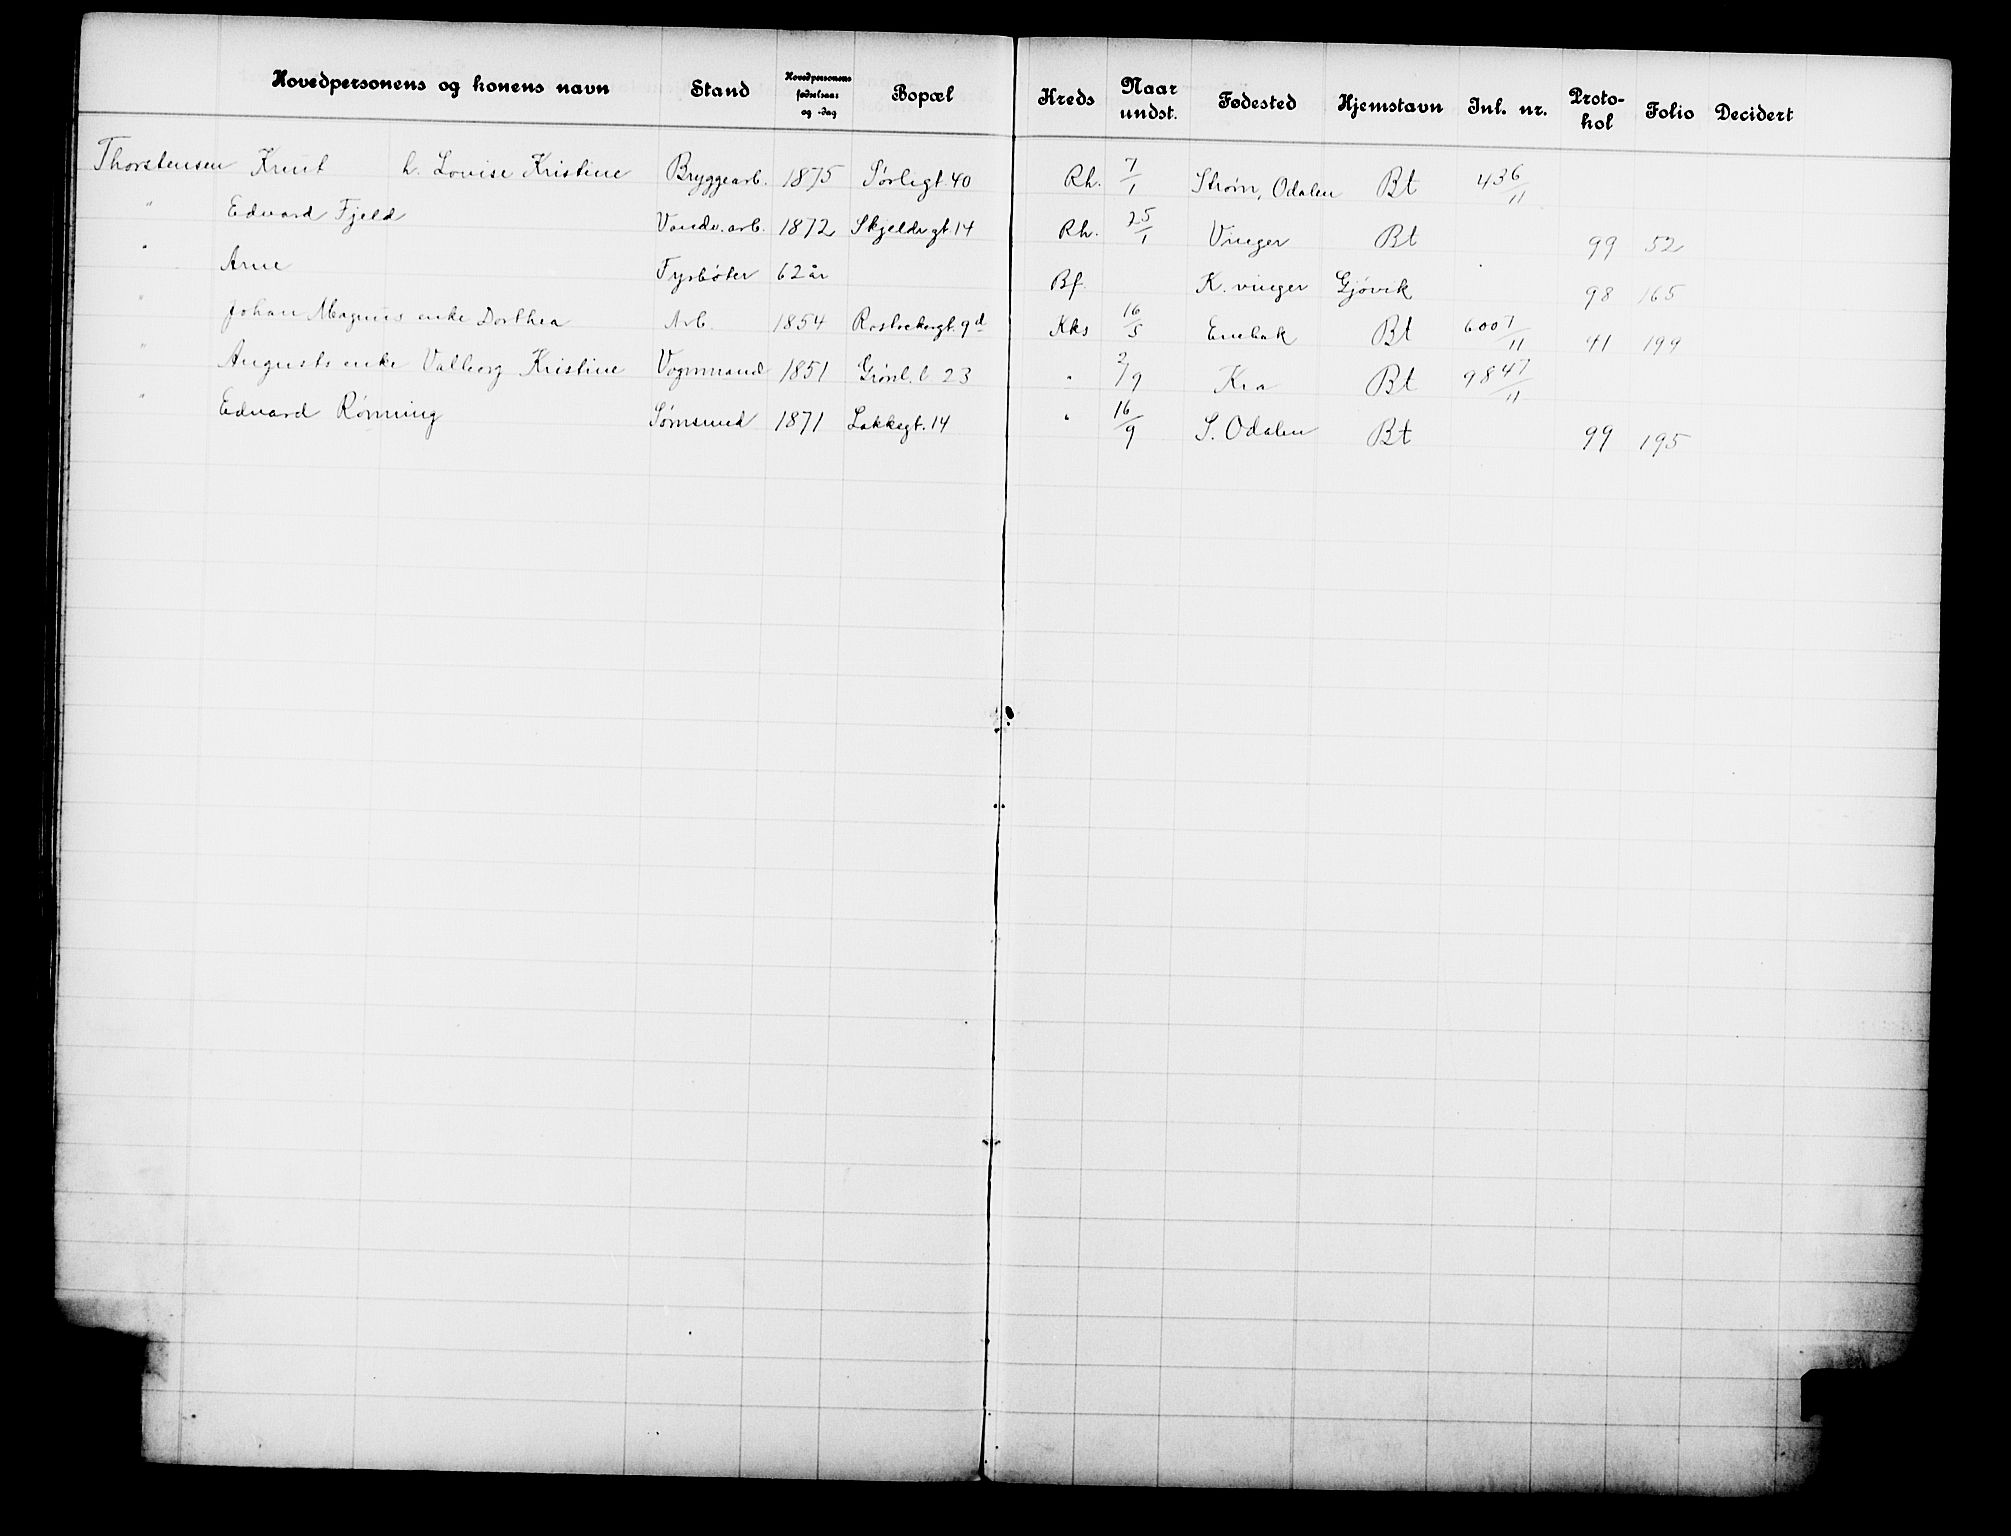 Hovedpersonens og konens navn Stand Hovedpersonens fødselsaar og -dag Bopæl Kreds Naar undst. Fødested Hjemstavn Inl. nr. Protokol Folio Decidert
Thorstensen Knut h. Lovise Kristine Bryggearb. 1875 Sørligt. 40 Rh. 7/1 Strøm, Odalen Bt 436/11
" Edvard Fjeld Vandv. arb. 1872 Skjeldr gt 14 Rh. 25/1 Vinger Bt 99 52
" Arne Fyrbøter 62 år Bf. K. vinger Gjøvik 98 165
" Johan Magnus enke Dorthea Arb. 1854 9d Kks 16/5 Enebak Bt 6007/11 41 199
" Augusts enke Valborg Kristine Vognmand 1851 Grønl. l 23 " 2/9 Kra Bt 9847/11
" Edvard Rønning Tømsmed 1871 Lakkegt. 14 " 16/9 S. Odalen Bt 99 195